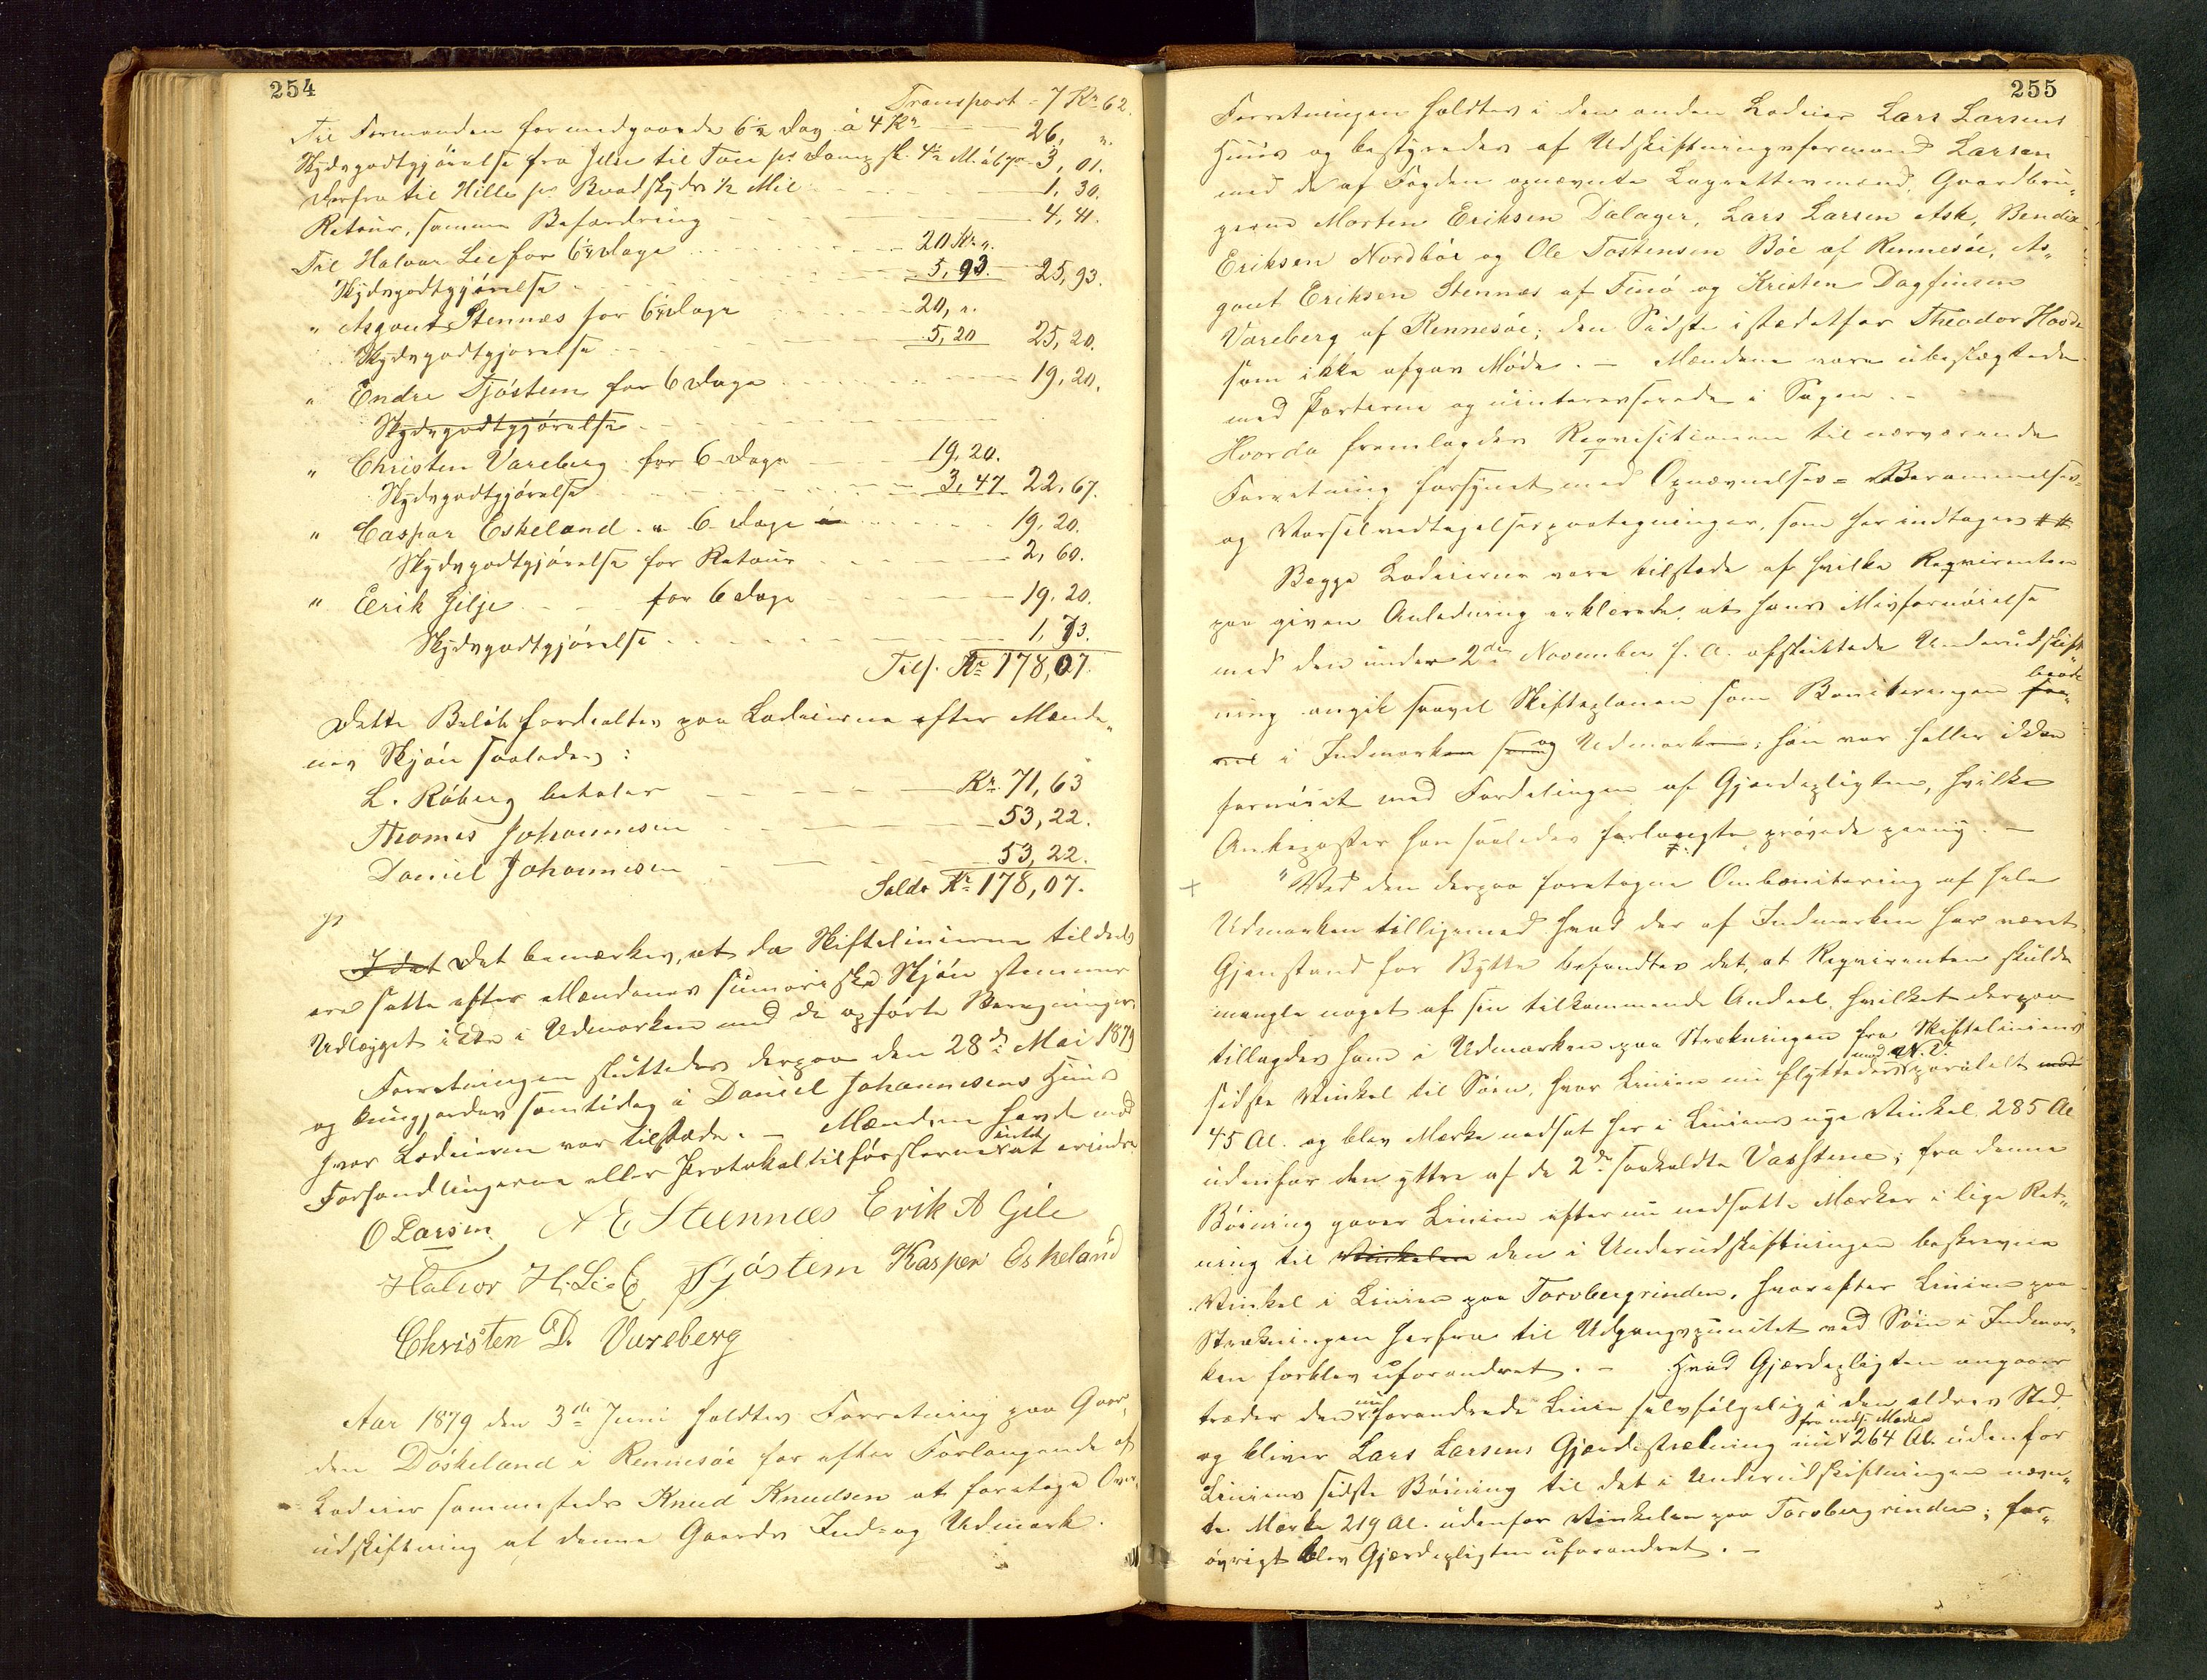 254
Transport = 7 Kr 62.
Til Formanden for medgaaende 6½ Dag à 4 Kr 26, ".
Skydsgodtgjørelse fra Jelse til Tou pr Damp sk. 4½ M. à 67ør 3,01.
Derfra til Hille pr Baadskyds ½ Mil 1,30.
Retour, samme Befordring 4,41.
Til Halvor Lie for 6¼ Dage 20 Kr ".
Skydsgodtgjørelse 5,93. 25,93.
" Asgout Stennæs for 6¼ Dage 20, ".
Skydsgodtgjørelse 5,20 25,20.
" Endre Tjöstem for 6 Dage 19,20.
Skydsgodtgjørelse
" Christen Vareberg for 6 Dage 19,20.
Skydsgodtgjørelse 3,47 22,67.
" Caspar Eskeland " 6 Dage 19,20.
Skydsgodtgjørelse for Retour 2,60.
" Erik Gilje for 6 Dage 19,20.
Skydsgodtgjørelse 1,73.
Tils. Kr 178,07.
Dette Beløb fordeltes paa Lodeierne efter Mænde„
nes Skjøn saaledes:
L. Råberg betaler Kr. 71,63
Thomas Johannesen 53,22.
Daniel Johannesen 53,22.
Saldo Kr 178,07.
I det Det bemærkes, at da Skiftelinierne tildeels
ere satte efter Mændenes sumariske Skjøn stemmer
Udlægget ikke i Udmarken med de opførte Beregninger.
Forretningen sluttedes derpaa den 28de Mai 1879
og kungjordes samtidig i Daniel Johannesens Huus
hvor Lodeierne var tilstæde. – Mændene havde mod
Forhandlingerne eller Protokoltilførslerne intet at erindre
O Larsen. A E Steennæs Erik A Gile
Halvor H. Lie E. Tjöstem Kasper Eskeland
Christen D. Vareberg
Aar 1879 den 3die Juni holdtes Forretning paa Gaar„
den Döskeland i Rennesöe for efter Forlangende af
Lodeier sammesteds Knud Knudsen at foretage Over„
udskiftning af denne Gaards Ind- og Udmark.
255
Forretningen holdtes i den anden Lodeier Lars Larsens
Huus og bestyredes af Udskiftningsformand Larsen
med de af Fogden opnævnte Lagrettesmænd, Gaardbru„
gerne Morten Eriksen Dalager, Lars Larsen Ask, Bendix
Eriksen Nordböe og Ole Tostensen Böe af Rennesöe, As„
gout Eriksen Stennæs af Finö og Kristen Dagfinsen
Vareberg af Rennesöe; den Sidste istædetfor Theodor Hovda
som ikke afgav Møde. – Mændene vare ubeslægtede
med Parterne og uinteresserede i Sagen. –
Hvorda fremlagdes Reqvisitionen til nærværende
Forretning forsynet med Opnævnelses- Berammelses-
og Varselvedtagelsespaategninger, som her indtages
Begge Lodeierne vare tilstede af hvilke Reqvirenten
paa given Anledning erklærede, at hans Misfornøielse
med den under 2den November f. A. afsluttede Underudskift„
ning angik saavel Skifteplanen som Boniteringen baade
i Indmarken og Udmarken; han var heller ikke
fornøiet med Fordelingen af Gjerdepligten, hvilke
Ankeposter han saaledes forlangte prøvede paany. –
"Ved den derpaa foretagne Ombonitering af hele
Udmarken tilligemed hvad der af Indmarken har været
Gjenstand for Bytte befandtes det, at Reqvirenten skulde
mangle noget af sin tilkommende Andeel, hvilket derpaa
tillagdes ham i Udmarken paa Strækningen fra Skifteliniens
sidste Vinkel til Søen, hvor Linien nu flyttedes mod N.V. paralelt med
45 Al. og blev Mærke nedsat her i Liniens nye Vinkel 285 Al
udenfor den yttre af de 2de saakaldte Varstene; fra denne
Böining gaaer Linien efter nu nedsatte Mærker i lige Ret„
ning til Vinkelen den i Underudskiftningen beskrevne
Vinkel i Linien paa Torvbergrinden, hvorefter Linien paa
Strækningen herfra til Udgangspunktet ved Søen i Indmar„
ken forblev uforandret. – Hvad Gjærdepligten angaaer
træder den nu forandrede Linie selvfølgelig i den ældres Sted,
og bliver Lars Larsens Gjerdestrækning nu fra neds. Mærke 264 Al. udenfor
Liniens sidste Böining til det i Underudskiftningen nævn„
te Mærke 219 Al. udenfor Vinkelen paa Torvbergrinden; for„
övrigt blev Gjerdepligten uforandret. –